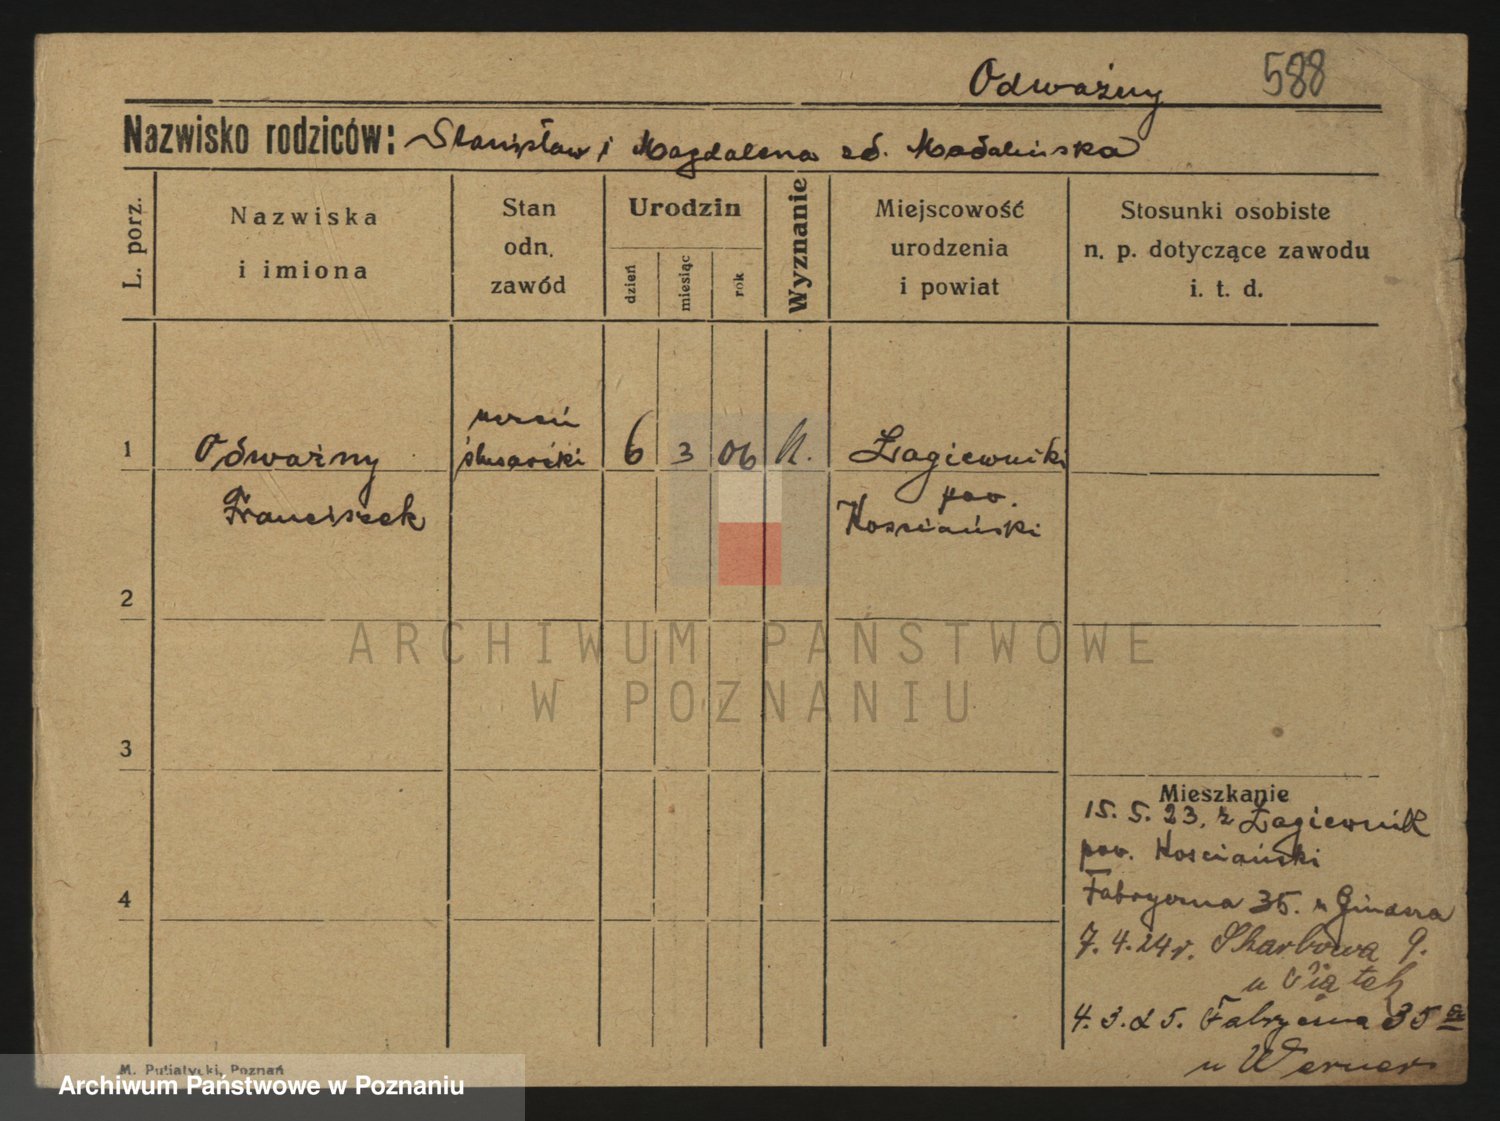 Odważny 588
Nazwisko rodziców: Stanisław i Magdalena zd. Madalińska
L. porz.
Nazwiska
i imiona
Stan
odn.
zawód
Urodzin
dzień
miesiąc
rok
Wyznanie
Miejscowość
urodzenia
i powiat
Stosunki osobiste
n. p. dotyczące zawodu
i. t. d.
1 Odważny
Franciszek
uczeń
ślusarski
6 3 06 K.
Łagiewniki
pow.
Kościański
2
3
4
Mieszkanie
15. 5. 23. z Łagiewnik
pow. Kościański
Fabryczna 35. u
7. 4. 24 r. Skarbowa 9.
u Piątek
4. 3. 25. Fabryczna 35
u Werner
M. Putiatycki, Poznań
ARCHIWUM PAŃSTWOWE
W POZNANIU
Archiwum Państwowe w Poznaniu